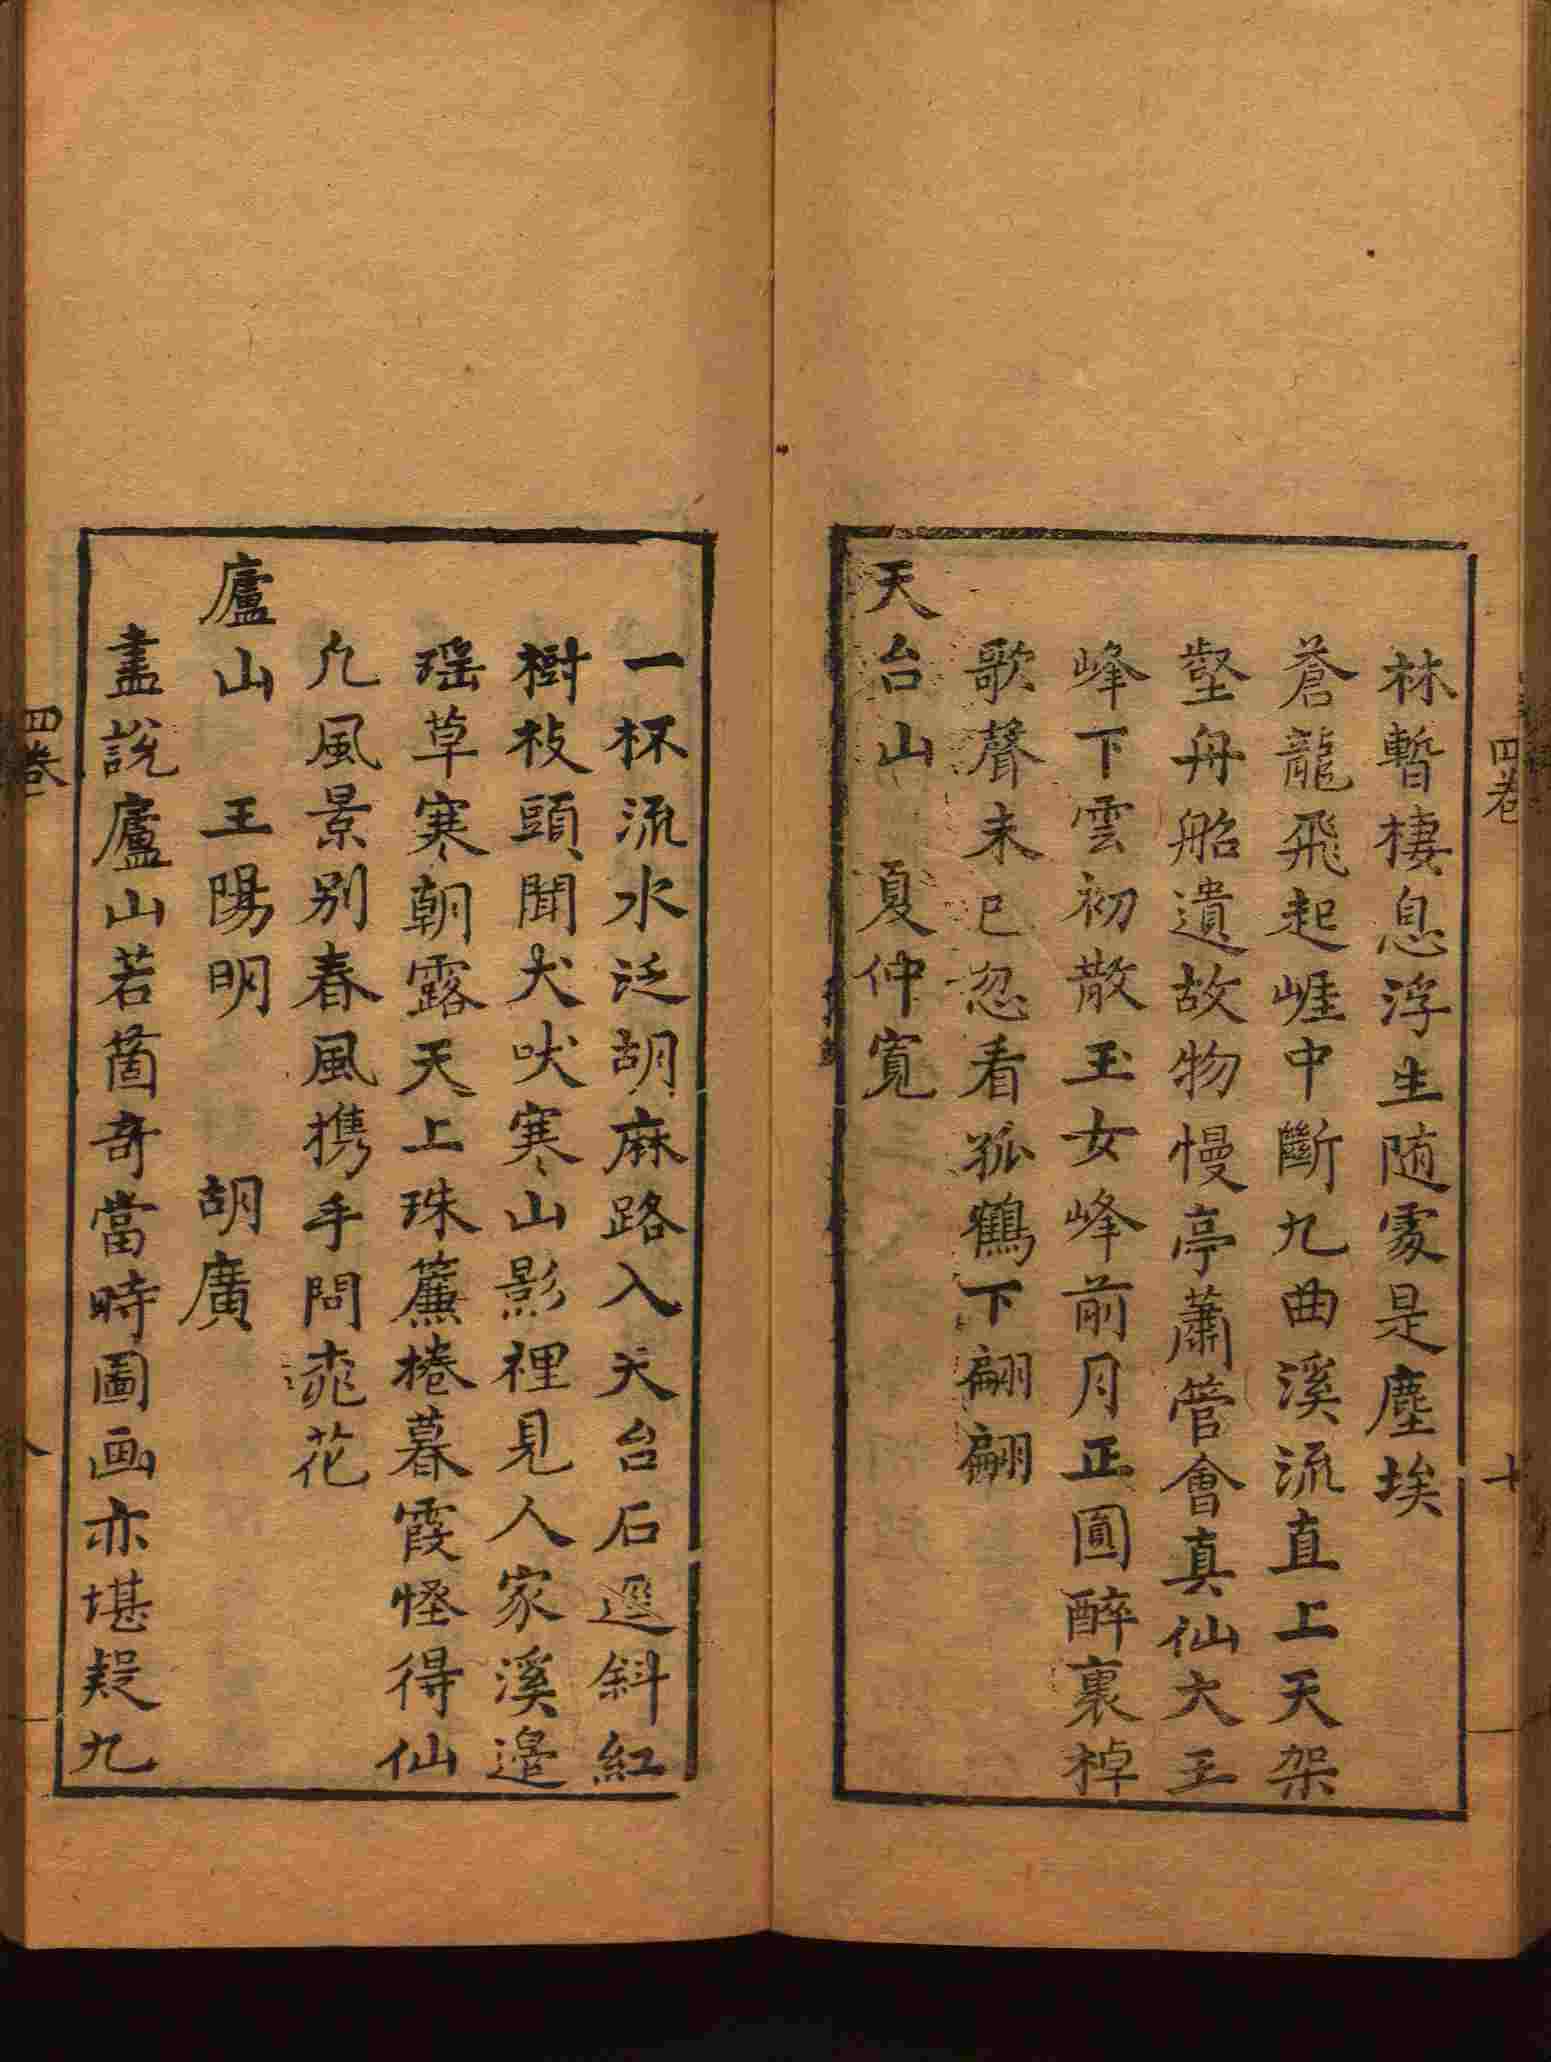 四卷
林暫棲息浮生随處是塵埃
蒼龍飛起崕中斷九曲溪流直上天架
壑舟船遺故物慢亭蕭管會真仙大王
峰下雲初散玉女峰前月正圓醉裏棹
歌聲未已忽看孤鶴下翩翩
天台山 夏仲寬
一杯流水泛胡麻路入天台石逕斜紅
樹枝頭聞犬吠寒山影裡見人家溪邉
瑶草寒朝露天上珠簾捲暮霞怪得仙
凢風景别春風携手問桃花
廬山 王陽明 胡廣
盡說廬山若箇竒當時圖画亦堪疑九
四卷